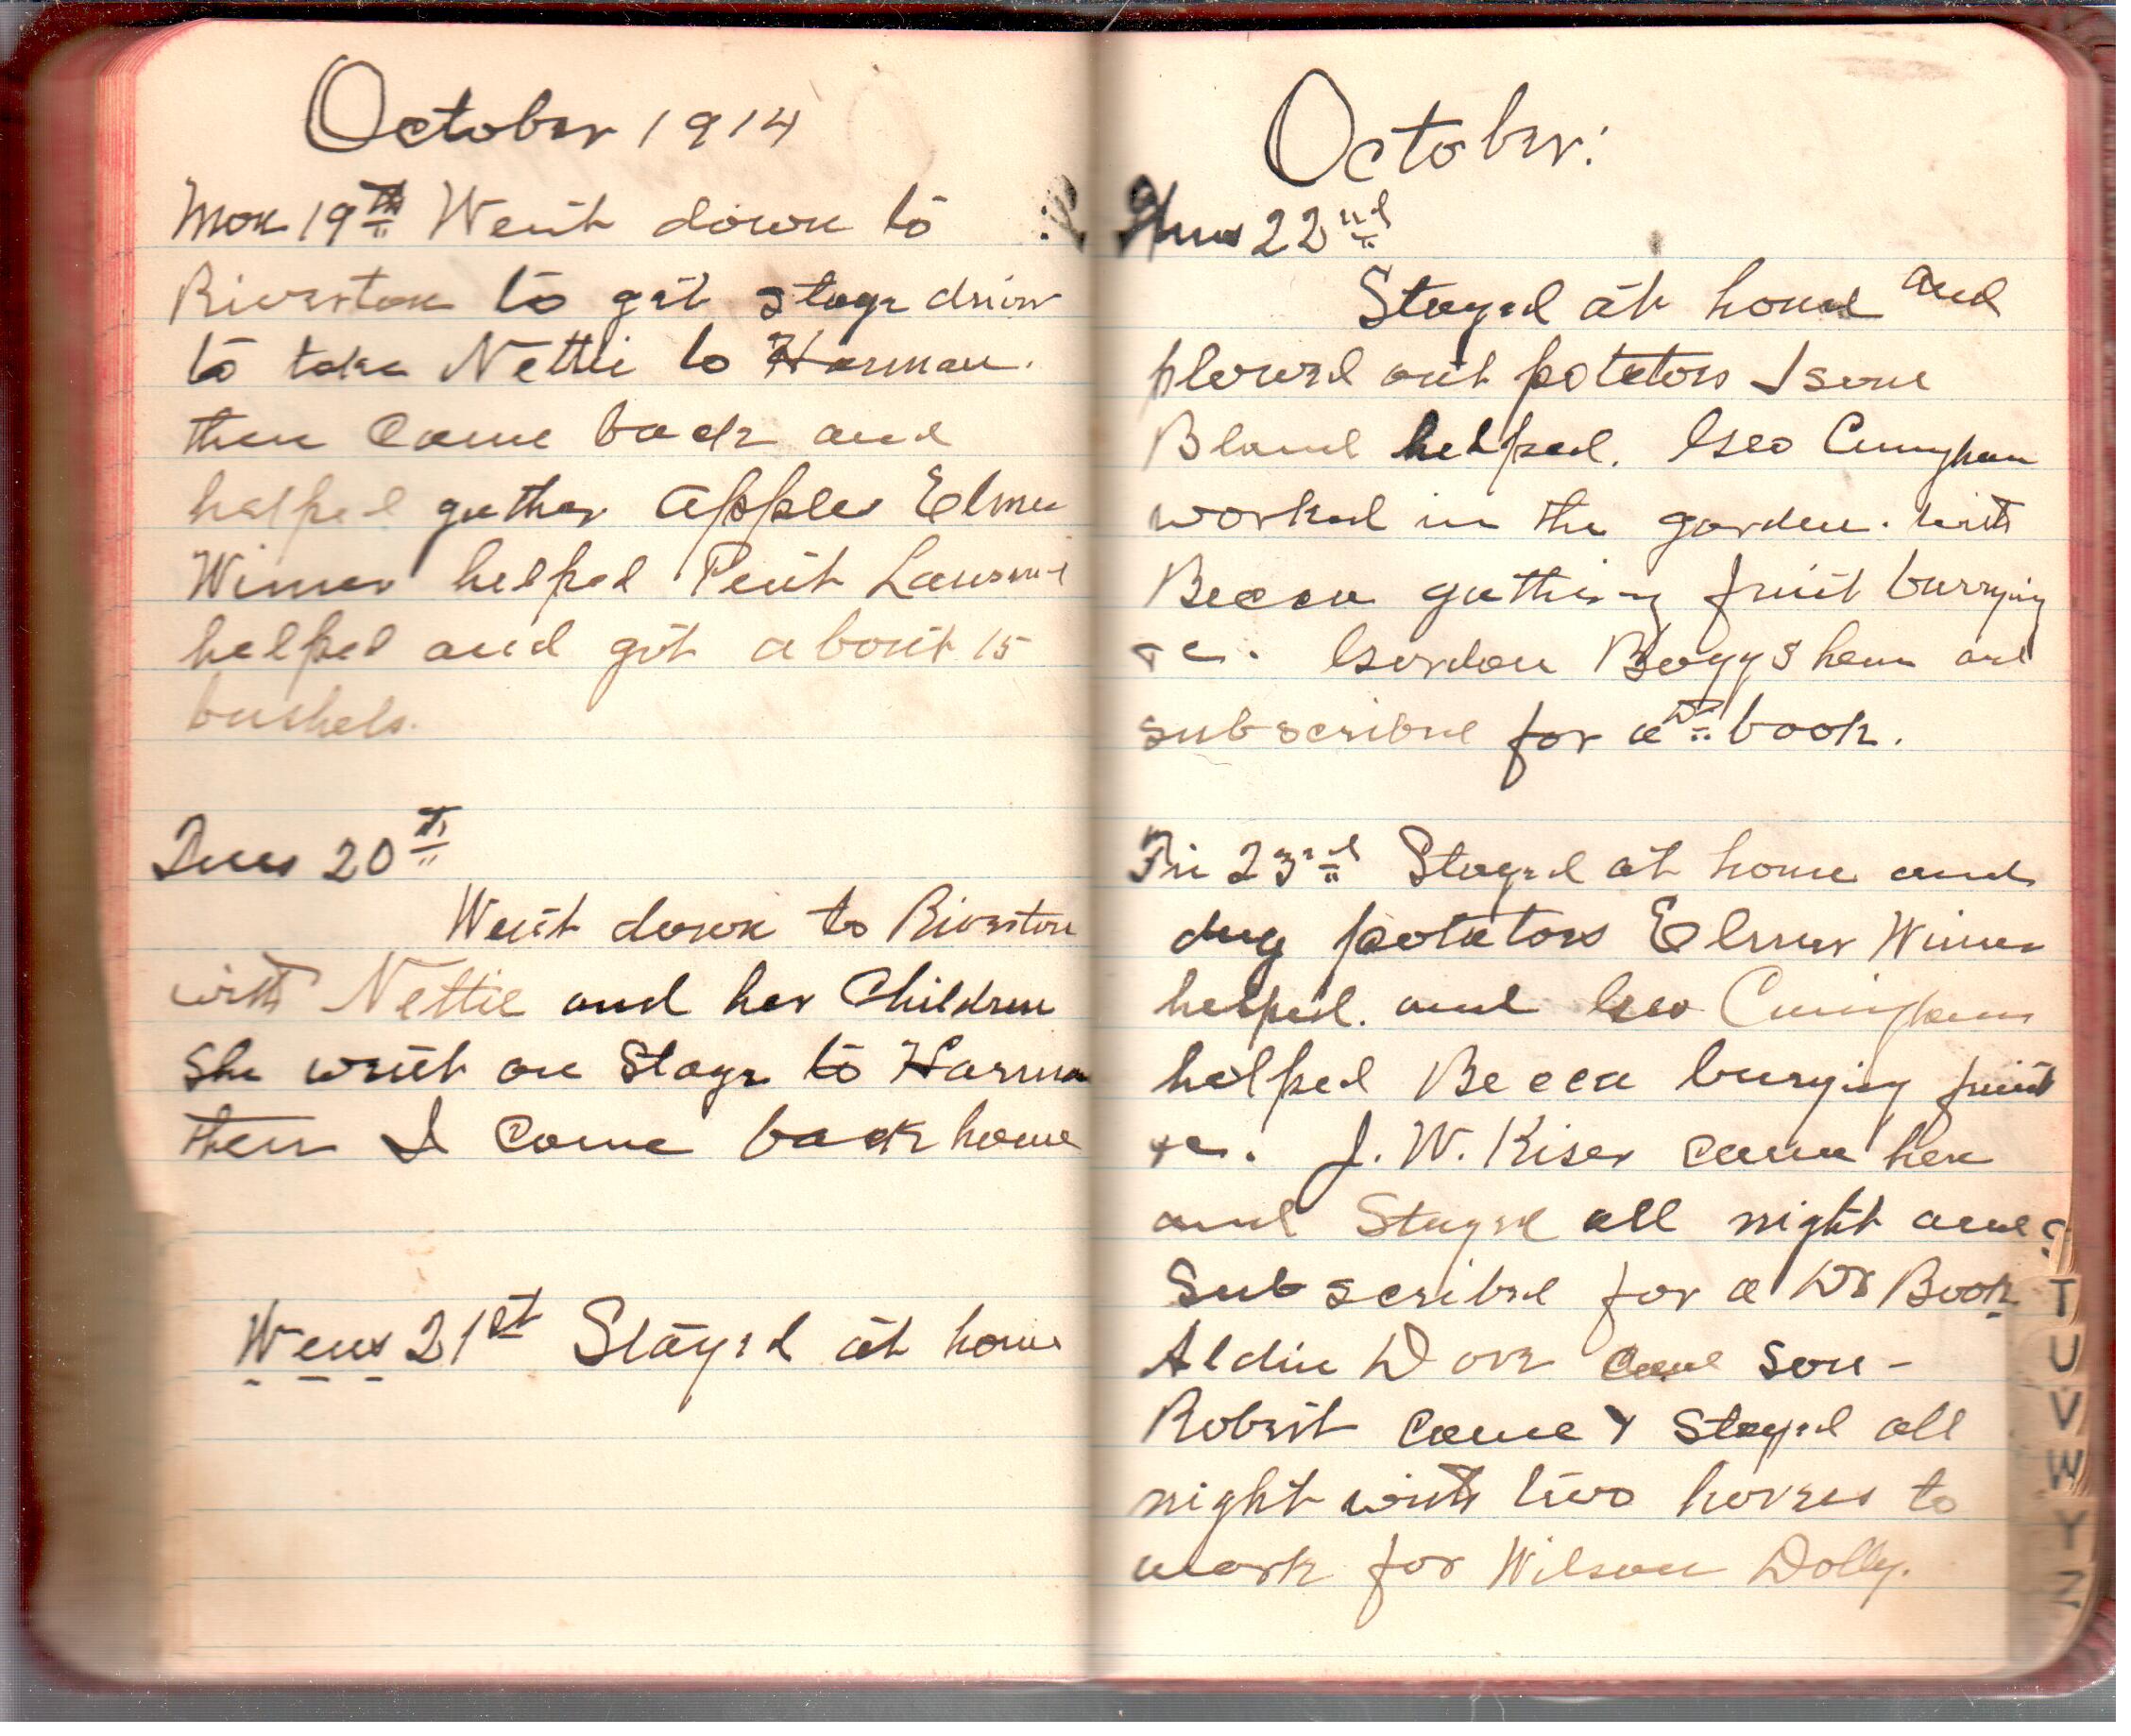 October 1914
Mon 19th Went down to
Riverton to get stage driver
to take Nettie to Harman.
then Came back and
helped gather apples Elmer
Wimer helped
helped and got about 15
bushels.
Tues 20th
Went down to Riverton
with Nettie and her Children
She went on Stage to Harman
then I Come back home
Wens 21st Stayed at home
October:
Thurs 22nd
Stayed at home and
plowed out potatoes
Bland helped. Geo Cuningham
worked in the garden. with
Becca gathering fruit burrying
&c. Gordon Boggs here and
subscribed for a Dr book.
Fri 23rd Stayed at home and
dug potatoes Elmer Wimer
helped. and Geo Cuningham
helped Becca burying fruit
&c. J. W. Kiser came here
and Stayed all night and
Subscribed for a Dr Book
Aldine Dove and son-
Robert Came & Stayed all
night with two horses to
work for Wilson Dolly.
T
U
V
W
Y
Z